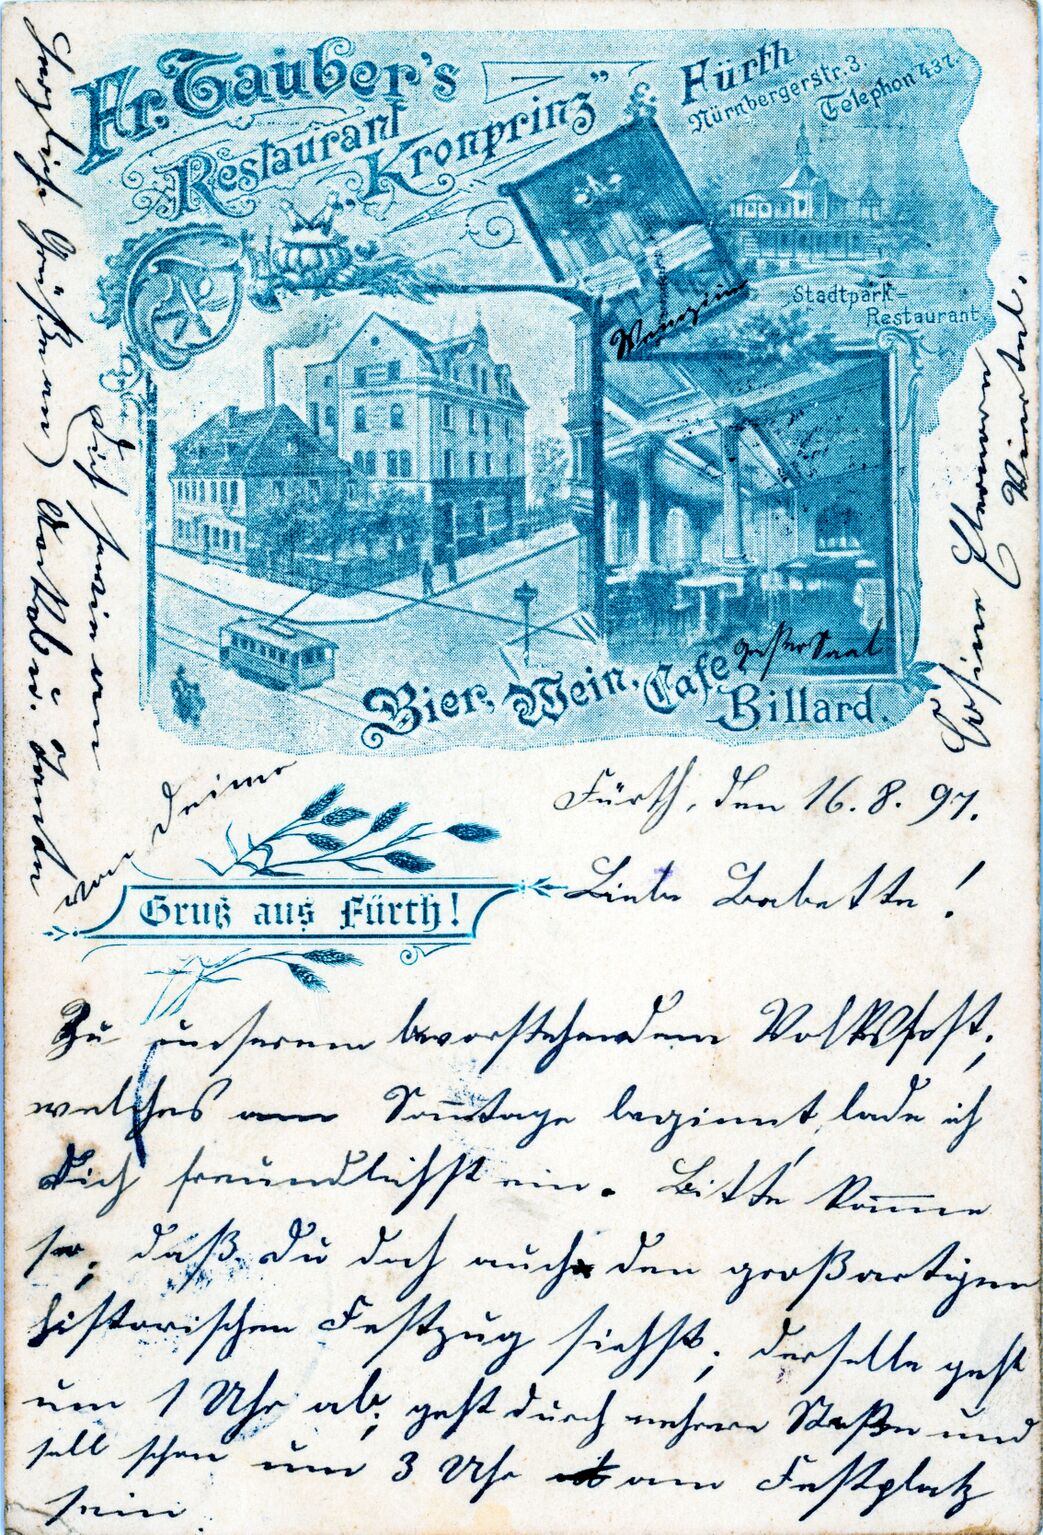 Fr. Tauber's
Restaurant
„Kronprinz"
Fürth
Nürnbergerstr. 3.
Telephon 437.
Stadtpark-
Restaurant.
großer Saal
Bier, Wein, Cafe
Billard.
Gruß aus Fürth!
Fürth, den 16. 8. 97.
Liebe Babette!
Zu unserem bevorstehendem Volksfest,
welches am Sonntage beginnt, lade ich
Dich freundlichst ein. Bitte komme
so, daß Du doch auch den großartigen
historischen Festzug siehst, derselbe geht
um 1 Uhr ab, geht durch mehrere Straßen und
soll schon um 3 Uhr am Festplatz
sein.
Herzliche Grüße an
Tante
Dich sowie an
von Deiner